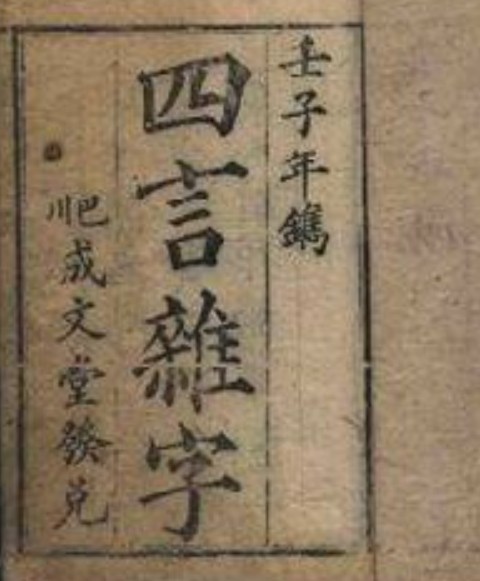 壬子年鐫
四言雜字
巴川成文堂發兌